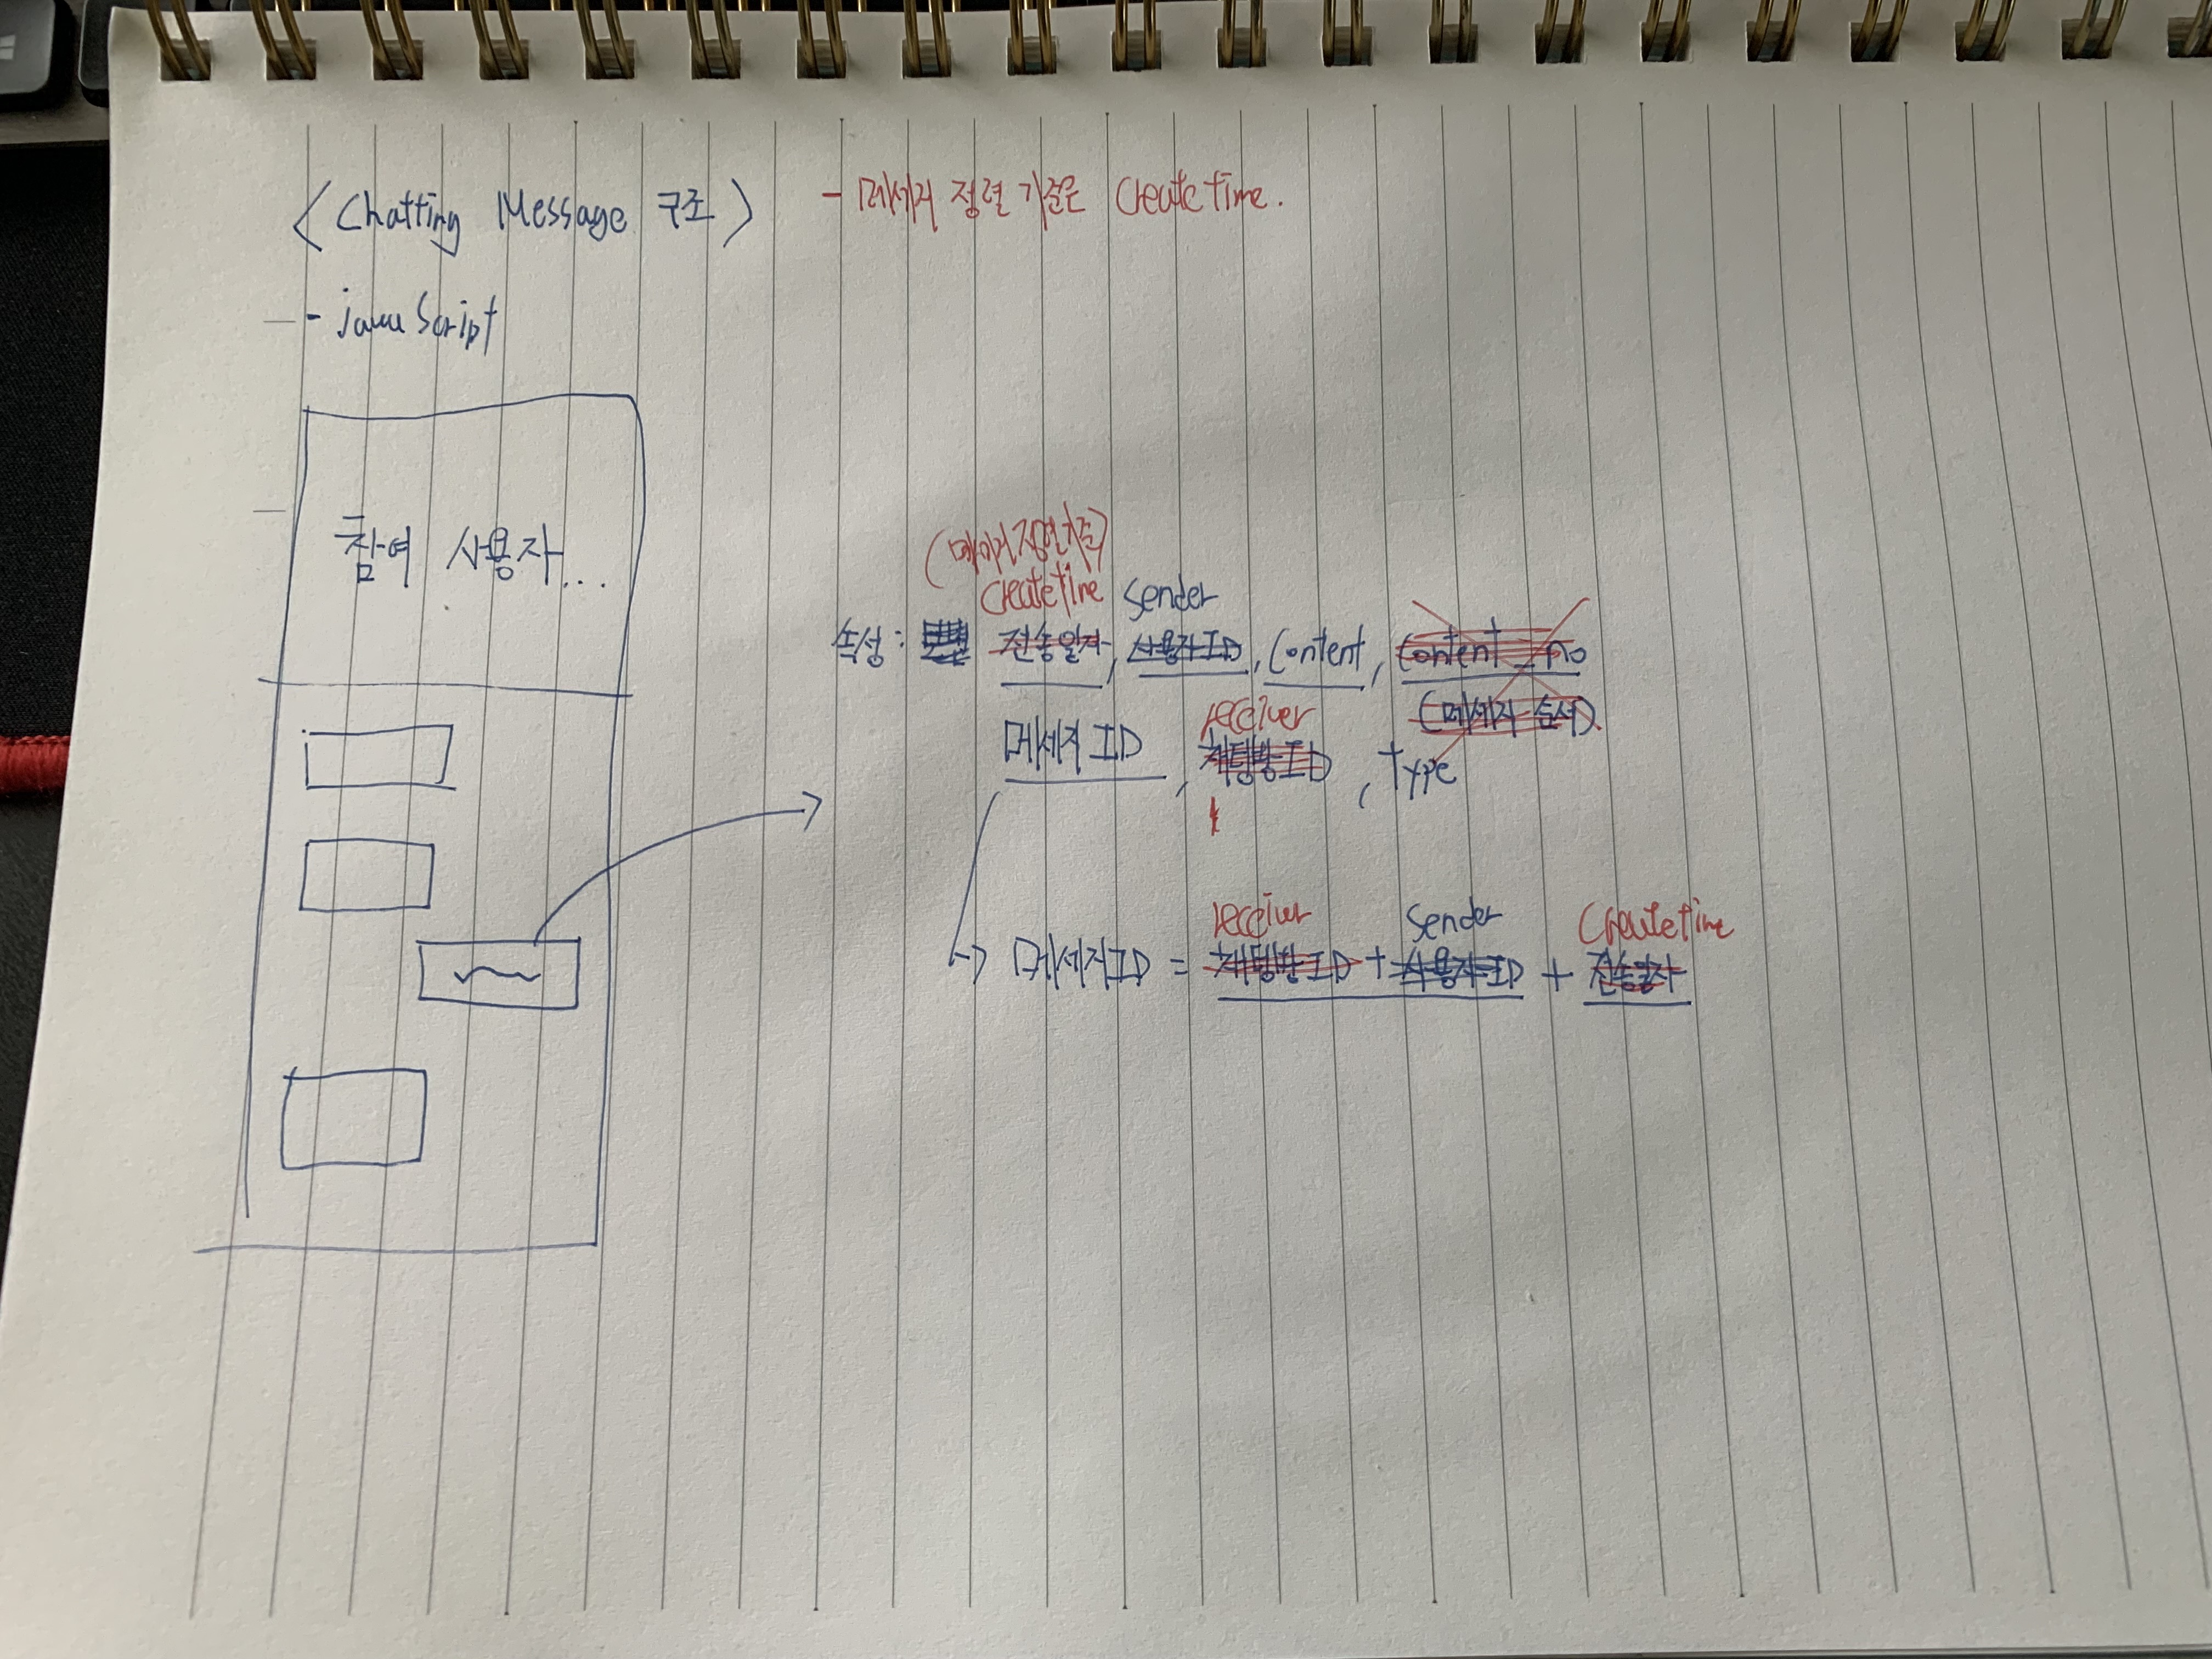 <Chatting Message 구조> - 메세지 정렬 기준은 Createtime.
- javaScript
참여 사용자...
(메세지 정렬기준)
Createtime Sender
속성 : 전송일자, 사용자ID, Content, Content_no
(메세지 순서)
receiver
메세지 ID, 채팅방ID, type
receiver Sender Createtime
→ 메세지ID = 채팅방ID + 사용자ID + 전송일자